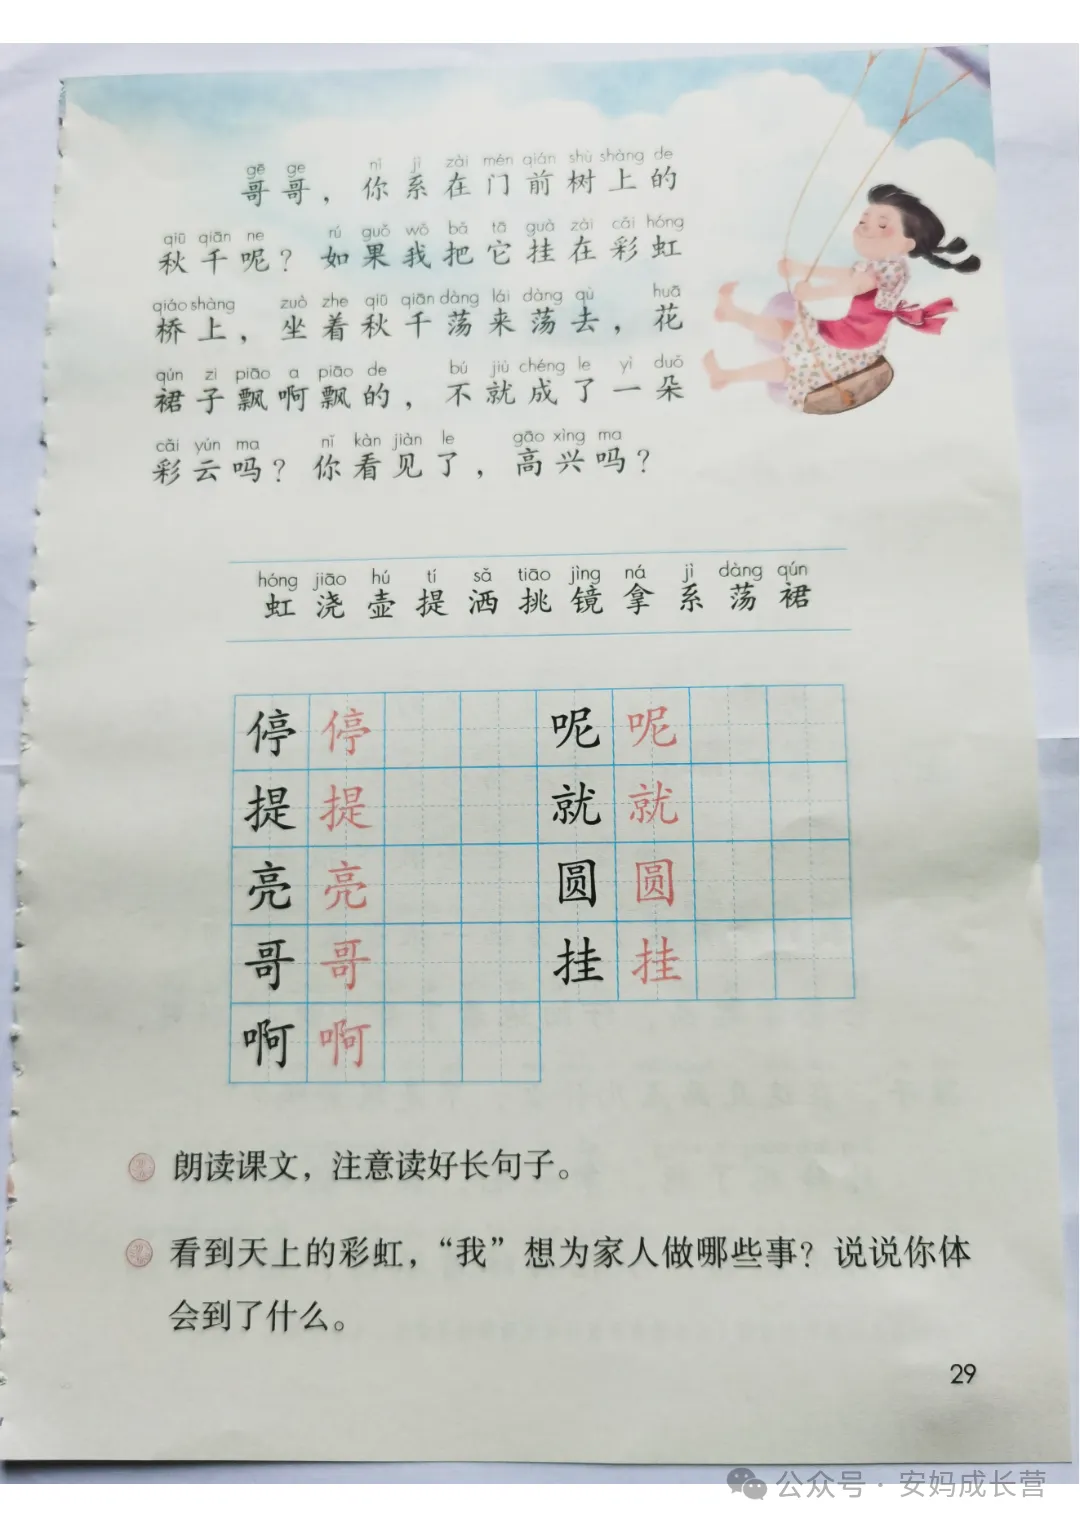 gē ge nǐ jì zài mén qián shù shàng de
哥哥，你系在门前树上的
qiū qiān ne rú guǒ wǒ bǎ tā guà zài cǎi hóng
秋千呢？如果我把它挂在彩虹
qiáo shàng zuò zhe qiū qiān dàng lái dàng qù huā
桥上，坐着秋千荡来荡去，花
qún zi piāo a piāo de bú jiù chéng le yì duǒ
裙子飘啊飘的，不就成了一朵
cǎi yún ma nǐ kàn jiàn le gāo xìng ma
彩云吗？你看见了，高兴吗？
hóng jiāo hú tí sǎ tiāo jìng ná jì dàng qún
虹浇壶提洒挑镜拿系荡裙
停停 呢呢
提提 就就
亮亮 圆圆
哥哥 挂挂
啊啊
朗读课文，注意读好长句子。
看到天上的彩虹，“我”想为家人做哪些事？说说你体
会到了什么。
29
公众号·安妈成长营